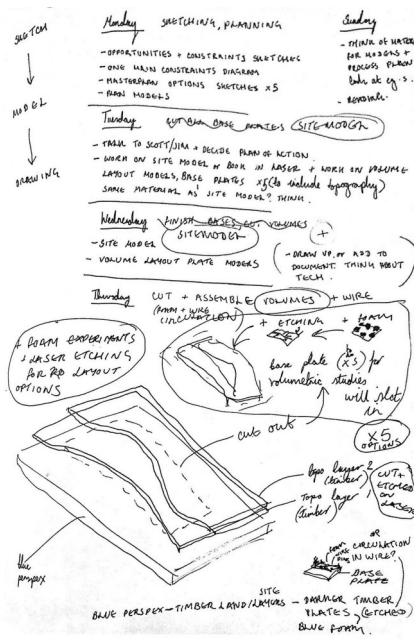 SKETCH
MODEL
DRAWING
Monday SKETCHING, PLANNING
- OPPORTUNITIES + CONSTRAINTS SKETCHES
- ONE MAIN CONSTRAINTS DIAGRAM
- MASTERPLAN OPTIONS SKETCHES x5
- PLAN MODELS
Sunday
- THINK OF MATER
FOR MODELS +
PROCESS
look at eg.s.
- READING.
Tuesday BASE PLATES SITE MODEL
- TALK TO SCOTT/JIM + DECIDE PLAN OF ACTION.
- WORK ON SITE MODEL or BOOK IN LASER + WORK ON VOLUME
LAYOUT MODELS, BASE PLATES x5 (to include topography)
SAME MATERIAL AS SITE MODEL? THINK.
Wednesday FINISH BASES CUT VOLUMES
SITE MODEL
- SITE MODEL
- VOLUME LAYOUT PLATE MODELS
+
- DRAW UP, or ADD TO
DOCUMENT. THINK ABOUT
TECH.
Thursday CUT + ASSEMBLE VOLUMES + WIRE
(FOAM + WIRE
CIRCULATION)
+ ETCHING + FOAM
+ FOAM EXPERIMENTS
+ LASER ETCHING
FOR LAYOUT
OPTIONS
base plate (x5) for
volumetric studies
will slot
in
x5
OPTIONS
cut out
topo layer 2
(timber)
topo layer 1
(timber)
CUT +
ETCHED
ON
LASER
blue
perspex
OR
CIRCULATION
IN WIRE?
BASE
PLATE
SITE
BLUE PERSPEX - TIMBER LAND/LAYERS - DARKER TIMBER
PLATES (ETCHED)
BLUE FOAM.